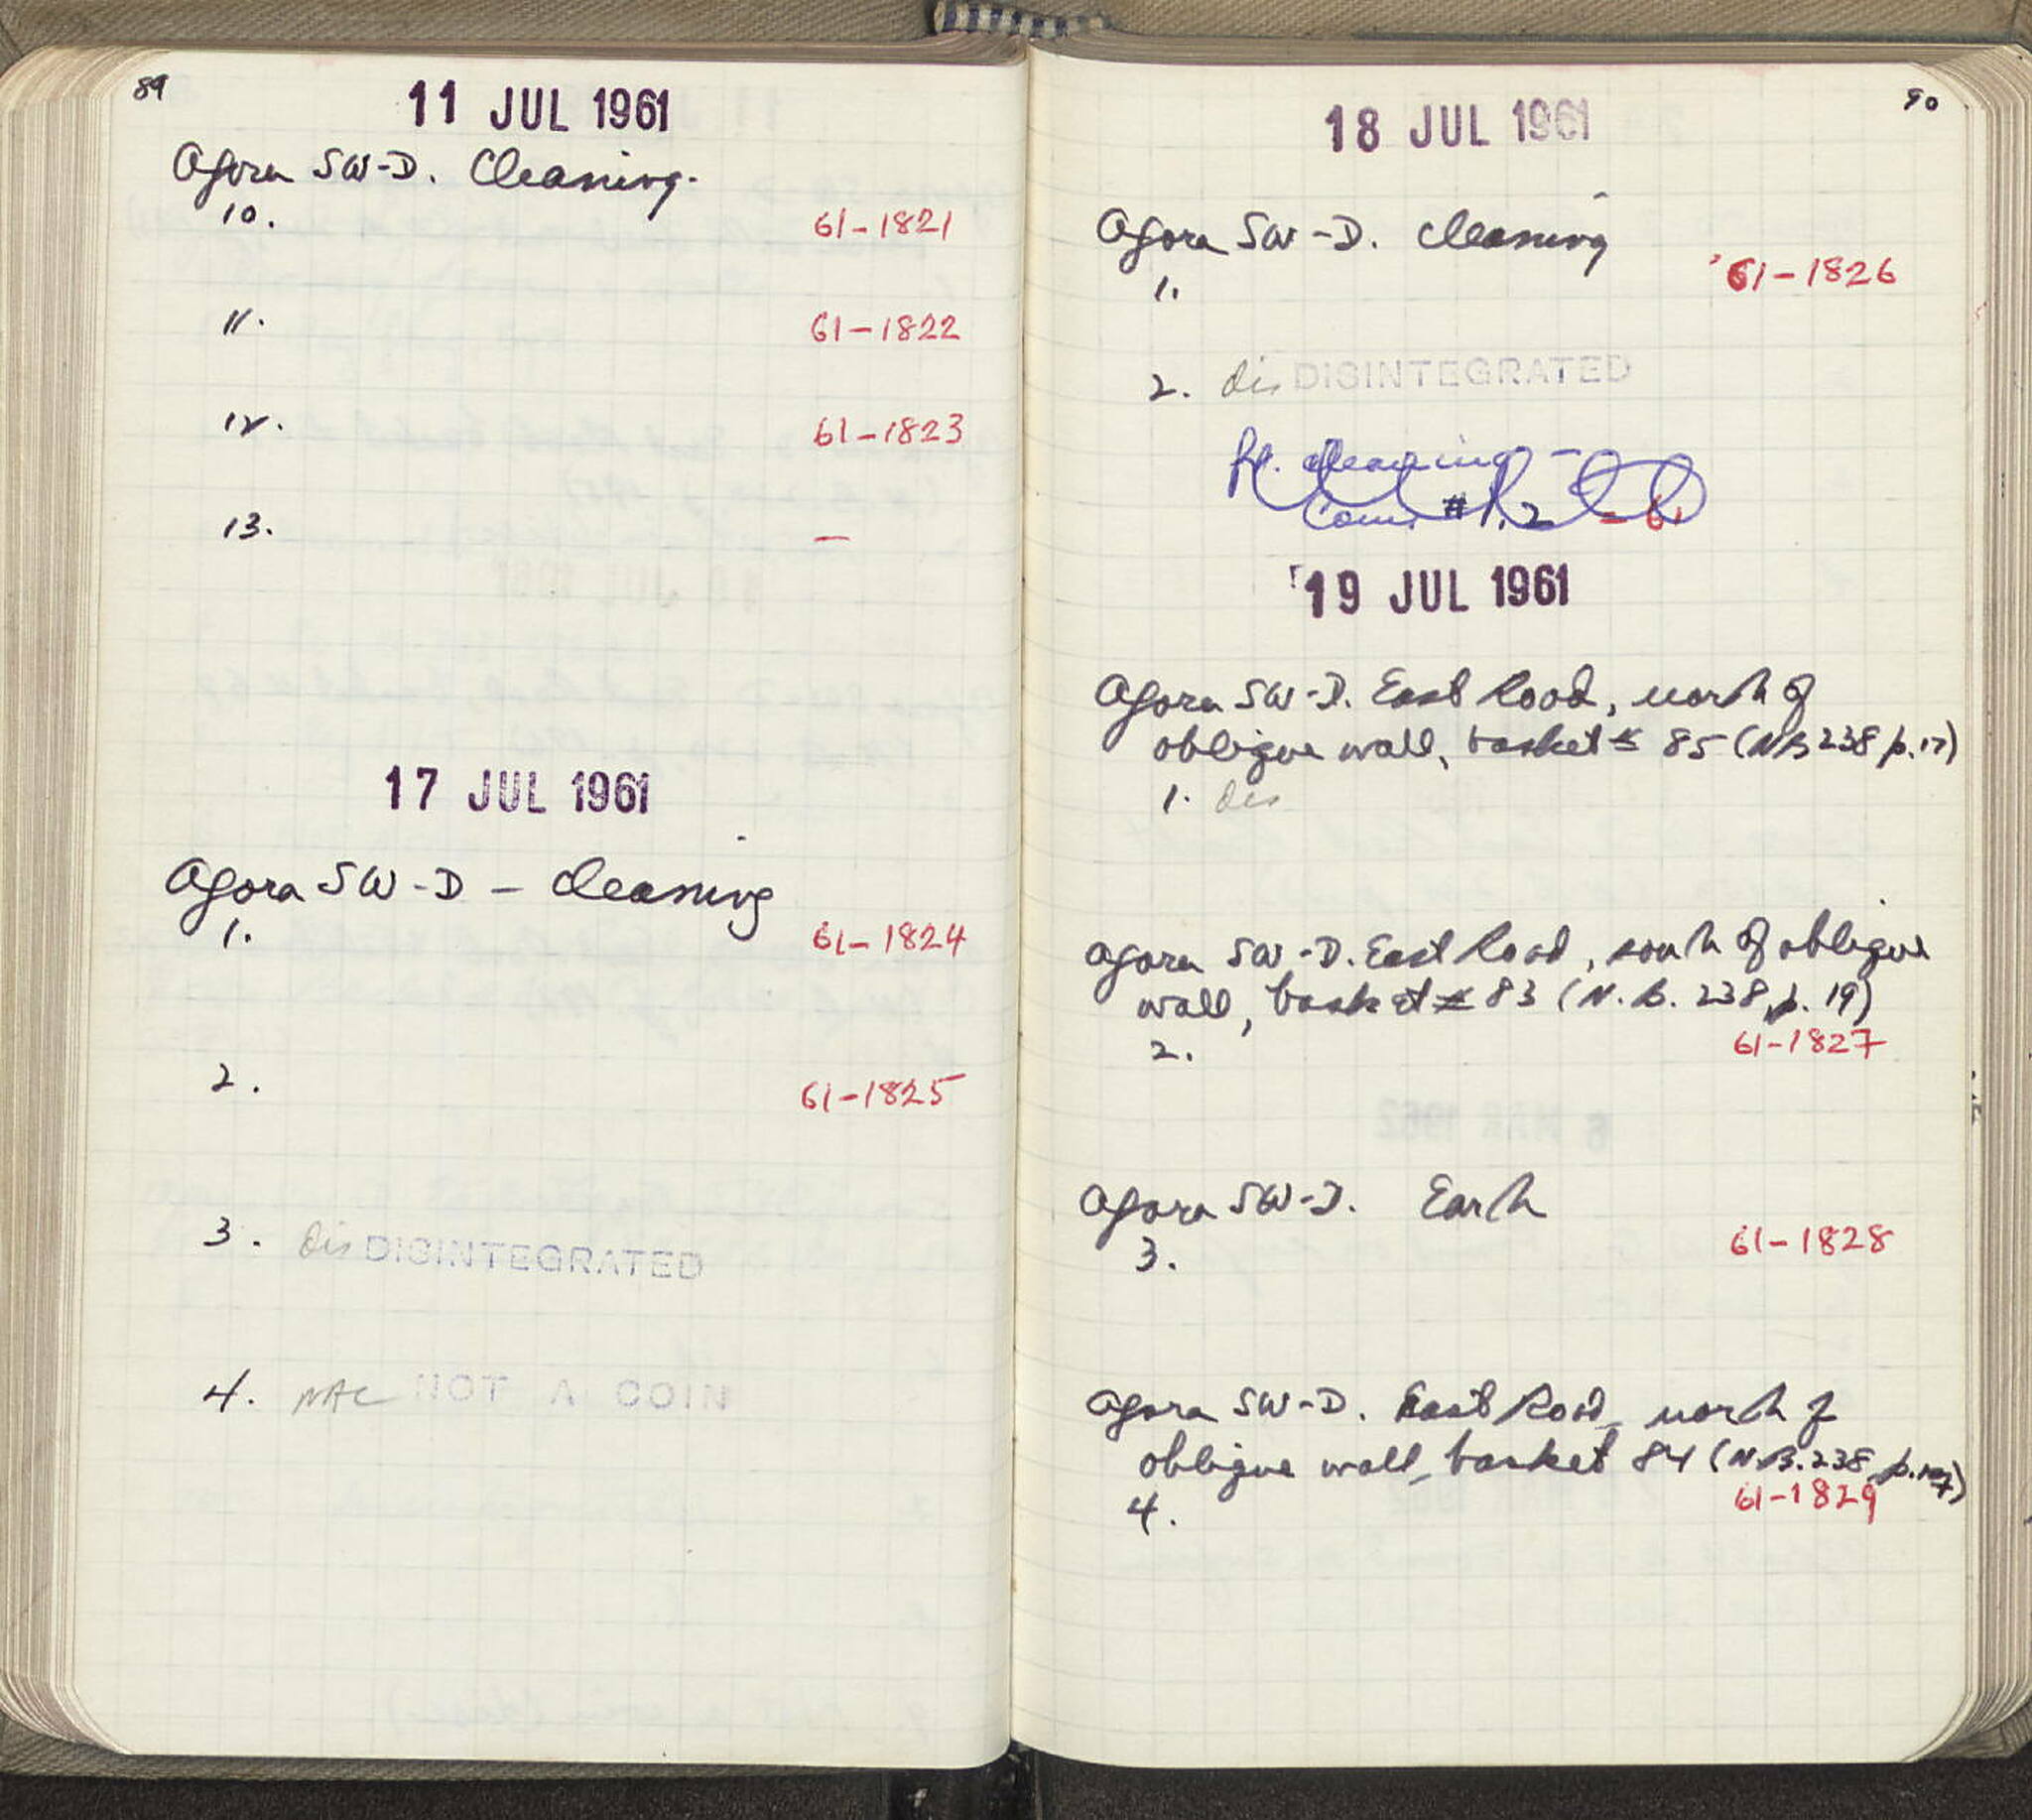 89
11 JUL 1961
Agora SW-D. Cleaning.
10.
61-1821
11.
61-1822
12.
61-1823
13.
—
17 JUL 1961
Agora SW-D - Cleaning
1.
61-1824
2.
61-1825
3. dis DISINTEGRATED
4. NAC NOT A COIN
90
18 JUL 1961
Agora SW-D. Cleaning
61-1826
1.
2. dis DISINTEGRATED
cleaning -
Coin #1.2 - 61
19 JUL 1961
Agora SW-D. East Road, north of
oblique wall, basket # 85 (NB 238 p. 17)
1. dis
Agora SW-D. East Road, south of oblique
wall, basket # 83 (N.B. 238, p. 19)
61-1827
2.
Agora SW-D. Earth
61-1828
3.
Agora SW-D. East Road, north of
oblique wall, basket 84 (N.B. 238, p. 17)
61-1829
4.